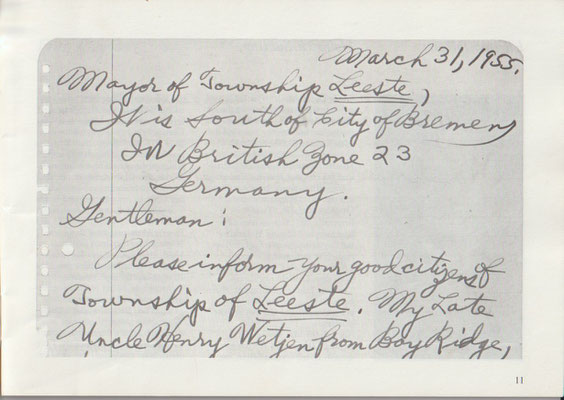 March 31, 1955.
Mayor of Township Leeste,
It is South of City of Bremen
IN British Zone 23
Germany.
Gentleman:
Please inform your good citizens of
Township of Leeste. My Late
Uncle Henry Wetjen from Bay Ridge,
11